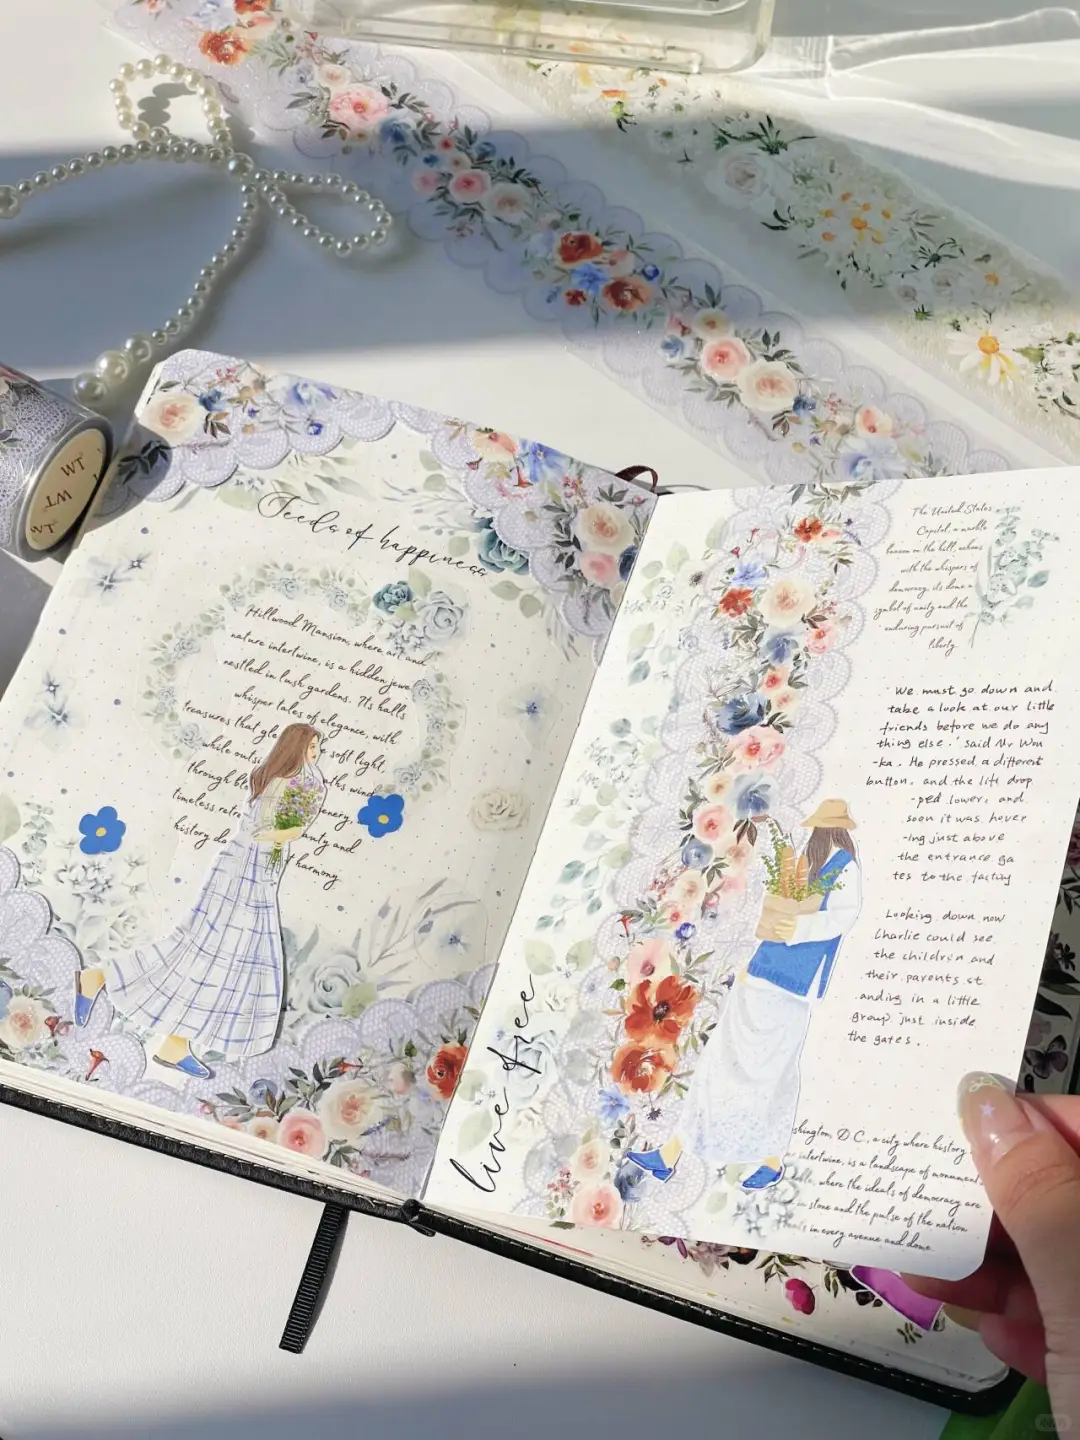 Feeds of happiness
Hillwood Mansion, where art and
nature intertwine, is a hidden jewe
nestled in lush gardens. Its halls
whisper tales of elegance, with
treasures that gle e soft light,
while outsi aths wind
through blo enery,
timeless retre auty and
history do f harmony.
live free
The United States
Capitol, a marble
beacon on the hill, echoes
with the whispers of
democracy, its dome a
symbol of unity and the
enduring pursuit of
liberty.
'We must go down and
take a look at our little
friends before we do any
thing else.' said Mr Won
-ka. He pressed a different
button, and the lift drop
-ped lower, and
soon it was hover
-ing just above
the entrance ga
tes to the factory
Looking down now
Charlie could see
the children and
their parents st
anding in a little
group just inside
the gates.
shington, D.C., a city where history
intertwine, is a landscape of monument
where the ideals of democracy are
in stone and the pulse of the nation
in every avenue and dome.
WT
WT
WT